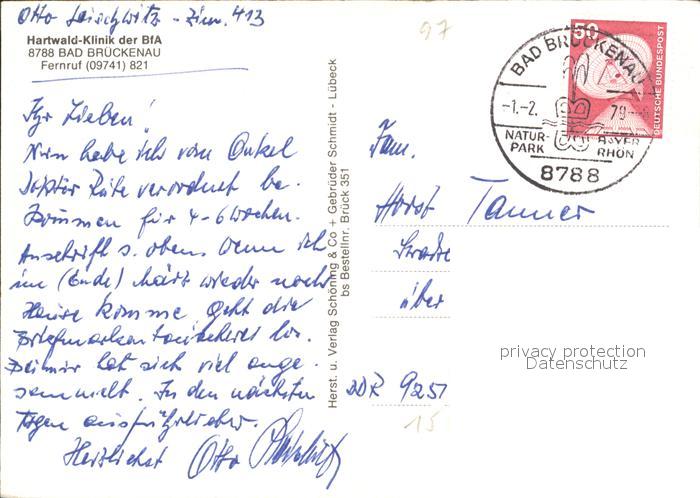 Otto - Zim. 413
Hartwald-Klinik der BfA
8788 BAD BRÜCKENAU
Fernruf (09741) 821
97
Ihr Lieben!
Nun habe ich vom Onkel
Doktor Ruhe verordnet be-
kommen für 4-6 Wochen.
Anschrift s. oben. Wenn ich
im (Ende) März wieder nach
Hause komme, geht die
Briefmarkentauscherei los.
Bei mir hat sich viel ange-
sammelt. In den nächsten
Tagen ausführlicher.
Herzlichst Otto
Herst. u. Verlag Schöning & Co + Gebrüder Schmidt - Lübeck
bs Bestellnr. Brück 351
50
DEUTSCHE BUNDESPOST
BAD BRÜCKENAU
-1.-2. 79
NATUR-
PARK
BAYER.
RHÖN
8788
Fam.
Horst Tanner
über
DDR 9251
15
privacy protection
Datenschutz